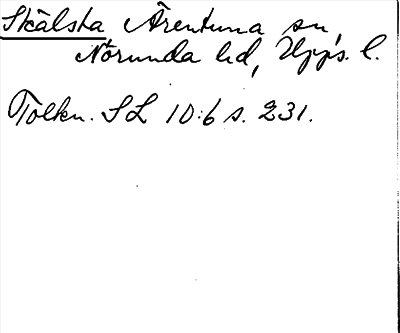 Skälsta, Ärentuna sn,
Norunda hd, Upps. l.
Tolkn. SL 10:6 s. 231.